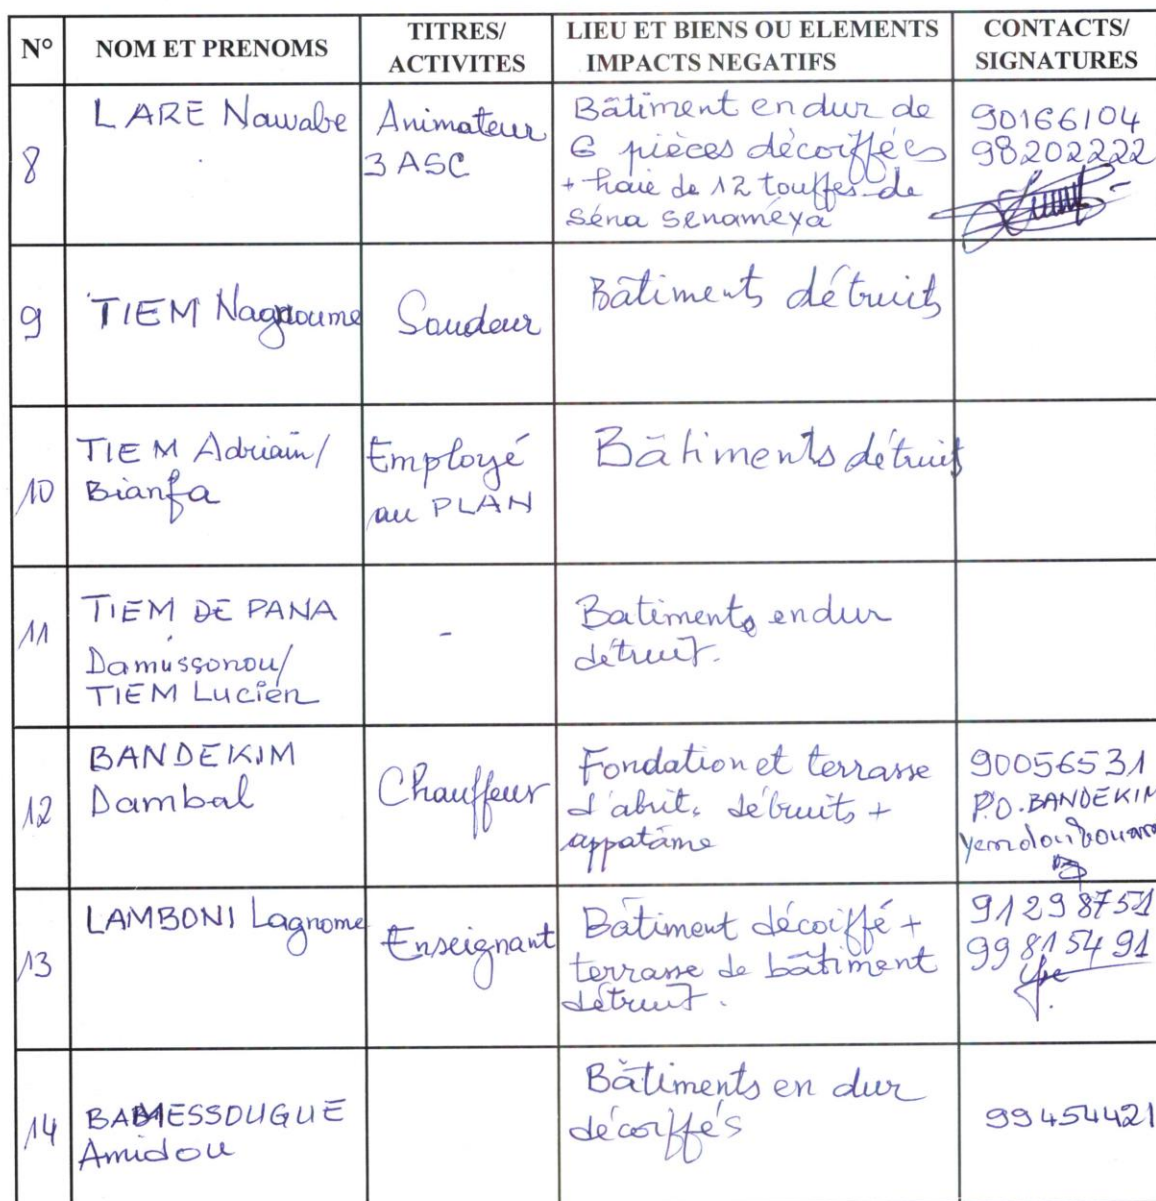 N°
NOM ET PRENOMS
TITRES/
ACTIVITES
LIEU ET BIENS OU ELEMENTS
IMPACTS NEGATIFS
CONTACTS/
SIGNATURES
8
LARE Nawabe
Animateur
3 ASC
Bâtiment en dur de
6 pièces décoiffées
+ haie de 12 touffes de
séna senaméya
90166104
98202222
9
TIEM Nagnoume
Soudeur
Bâtiments détruits
10
TIEM Adriain/
Bianfa
Employé
au PLAN
Bâtiments détruits
11
TIEM DE PANA
Damussonou/
TIEM Lucien
-
Batiments en dur
détruit.
12
BANDEKIM
Dambal
Chauffeur
Fondation et terrasse
d'abrit. détruits +
appatâme
90056531
P.O. BANDEKIM
13
LAMBONI Lagnome
Enseignant
Bâtiment décoiffé +
terrasse de bâtiment
détruit.
91298751
99815491
14
BAMESSOUGUE
Amidou
Bâtiments en dur
décoiffés
99454421